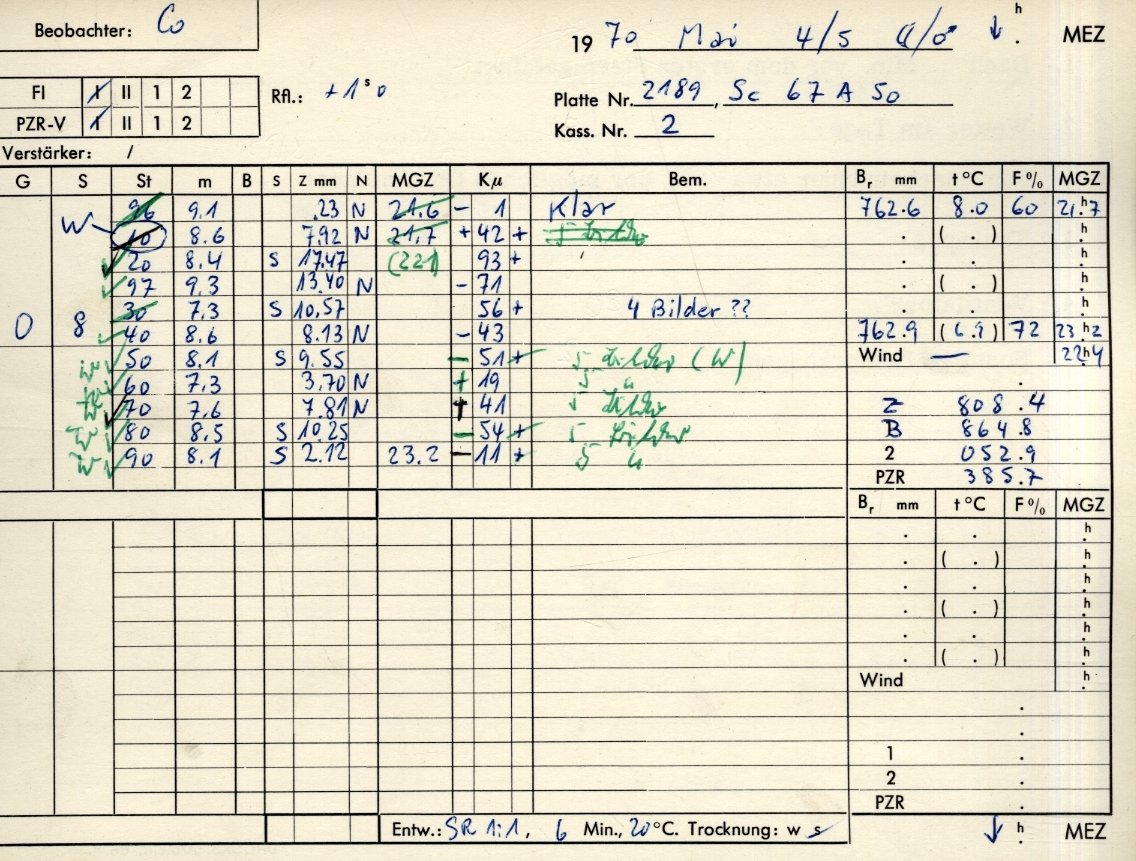 Beobachter: Co
19 70 Mai 4/5 ↓ h . MEZ
FI I II 1 2
PZR-V I II 1 2
Rfl.: +1 s 0
Platte Nr. 2189, Sc 67 A 50
Kass. Nr. 2
Verstärker: /
G S St m B S Z mm N MGZ Kμ Bem. Br mm t°C F% MGZ
W 96 9.1 .23 N 21.6 - 1 Klar 762.6 8.0 60 21.h7
10 8.6 7.92 N 21.7 + 42 + . ( . ) h.
20 8.4 S 17.47 (22.1) 93 + . . h.
97 9.3 13.40 N - 71 . ( . ) h.
30 7.3 S 10.57 56 + 4 Bilder ?? . . h.
0 8 40 8.6 8.13 N - 43 762.9 (6.9) 72 23.h2
W 50 8.1 S 9.55 - 51 + 5 Bilder (W) Wind — 22h4
60 7.3 3.70 N + 19 5 " .
70 7.6 7.81 N + 41 5 Bilder 2 808.4
80 8.5 S 10.25 - 54 + 5 Bilder B 864.8
W 90 8.1 S 2.12 23.2 - 11 + 5 " 2 052.9
PZR 385.7
Br mm t°C F% MGZ
. . h.
. ( . ) h.
. . h.
. ( . ) h.
. . h.
. ( . ) h.
Wind h.
.
.
1 .
2 .
PZR .
Entw.: SR 1:1, 6 Min., 20°C. Trocknung: w s ↓ h . MEZ